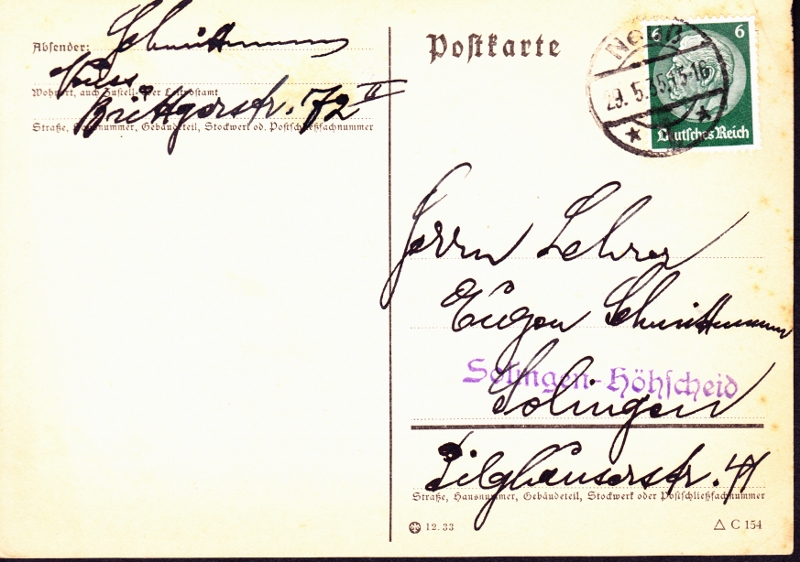 Absender: Schmittmann
Neuss
Wohnort, auch Zustell- oder Leitpostamt
Brüttgerstr. 72 II
Straße, Hausnummer, Gebäudeteil, Stockwerk od. Postschließfachnummer
Postkarte
Neuß
29. 5. 35. 15-16
6 6
Deutsches Reich
Herrn Lehrer
Eugen Schmittmann
Solingen-Höhscheid
Solingen
Pilghauserstr. 41
Straße, Hausnummer, Gebäudeteil, Stockwerk oder Postschließfachnummer
12. 33
C 154